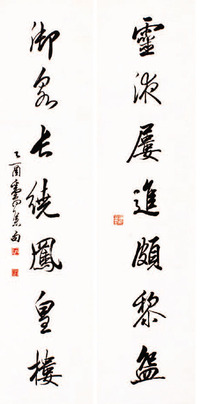 靈液屢進頗黎盌
御泉長繞鳳皇樓
乙酉